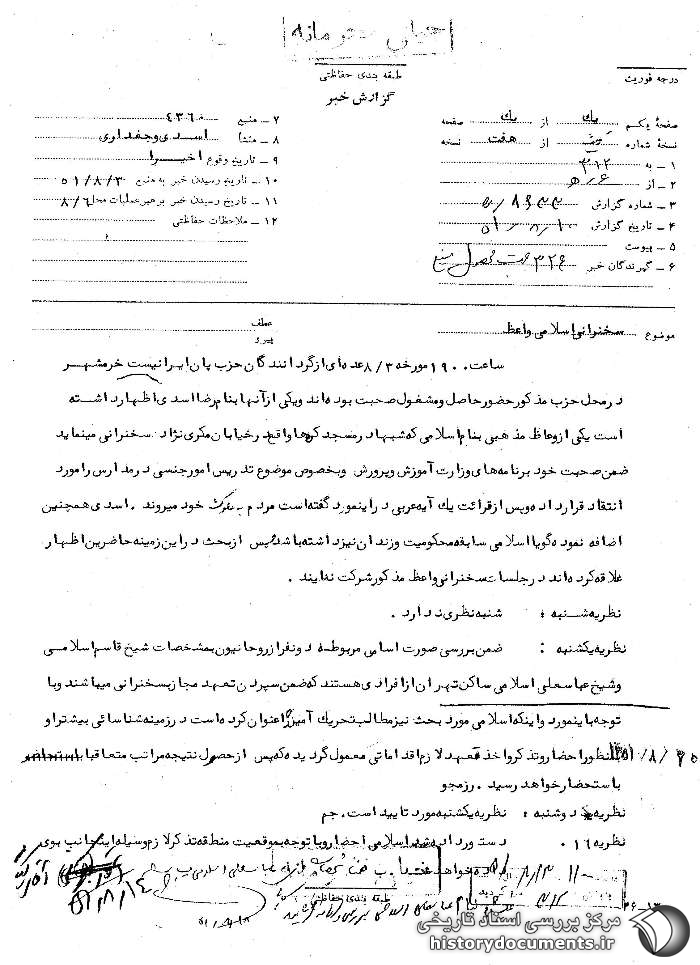 خیلی محرمانه
طبقه بندی حفاظتی
گزارش خبر
درجه فوریت
صفحهٔ یکم یک از یک صفحه
نسخهٔ شماره از هفت نسخه
۱ – به ۳۱۲
۲ – از ۶ ه
۳ – شماره گزارش
۴ – تاریخ گزارش ۵۱/۸/۱۰
۵ – پیوست
۶ – گیرندگان خبر ۳۲۶
۷ – منبع ۴۳۶۰
۸ – منشأ اسدی وجغداوی
۹ – تاریخ وقوع اخیرا
۱۰ – تاریخ رسیدن خبر به منبع ۵۱/۸/۳
۱۱ – تاریخ رسیدن خبر برهبر عملیات محل ۸/۶
۱۲ – ملاحظات حفاظتی
موضوع سخنرانی اسلامی واعظ
عطف
پیرو
ساعت ۱۹۰۰ مورخه ۸/۳ عده ای از گردانندگان حزب پان ایرانیست خرمشهر
در محل حزب مذکور حضور حاصل و مشغول صحبت بوده اند و یکی از آنها بنام رضا اسدی اظهار داشته
است یکی از وعاظ مذهبی بنام اسلامی که شبها در مسجد کرها واقع در خیابان مکری نژاد سخنرانی مینماید
ضمن صحبت خود برنامه های وزارت آموزش وپرورش وبخصوص موضوع تدریس امور جنسی در مدارس را مورد
انتقاد قرار داده وپس از قرائت یک آیه عربی در اینمورد گفته است مردم به خود میروند . اسدی همچنین
اضافه نموده گویا اسلامی سابقه محکومیت وزندان نیز داشته باشد پس از بحث در این زمینه حاضرین اظهار
علاقه کرده اند در جلسات سخنرانی واعظ مذکور شرکت نمایند .
نظریه شنبه : شنبه نظری ندارد .
نظریه یکشنبه : ضمن بررسی صورت اسامی مربوطه دو نفر از روحانیون بمشخصات شیخ قاسم اسلامی
وشیخ عباسعلی اسلامی ساکن تهران از افرادی هستند که ضمن سپردن تعهد مجاز بسخنرانی میباشند وبا
توجه باینمورد واینکه اسلامی مورد بحث نیز مطالب تحریک آمیز را عنوان کرده است در زمینه شناسائی بیشتر او
بمنظور احضار وتذکر واخذ تعهد لازم اقداماتی معمول گردیده که پس از حصول نتیجه مراتب متعاقبا باستحضار
باستحضار خواهد رسید . رزمجو
نظریه دوشنبه : نظریه یکشنبه مورد تایید است . جم
نظریه ۱۶ . دستور داده شد اسلامی احضار وبا توجه بموقعیت منطقه تذکر لازم وسیله اینجانب بوی
داده خواهد شد
طبقه بندی حفاظتی
مرکز بررسی اسناد تاریخی
historydocuments.ir